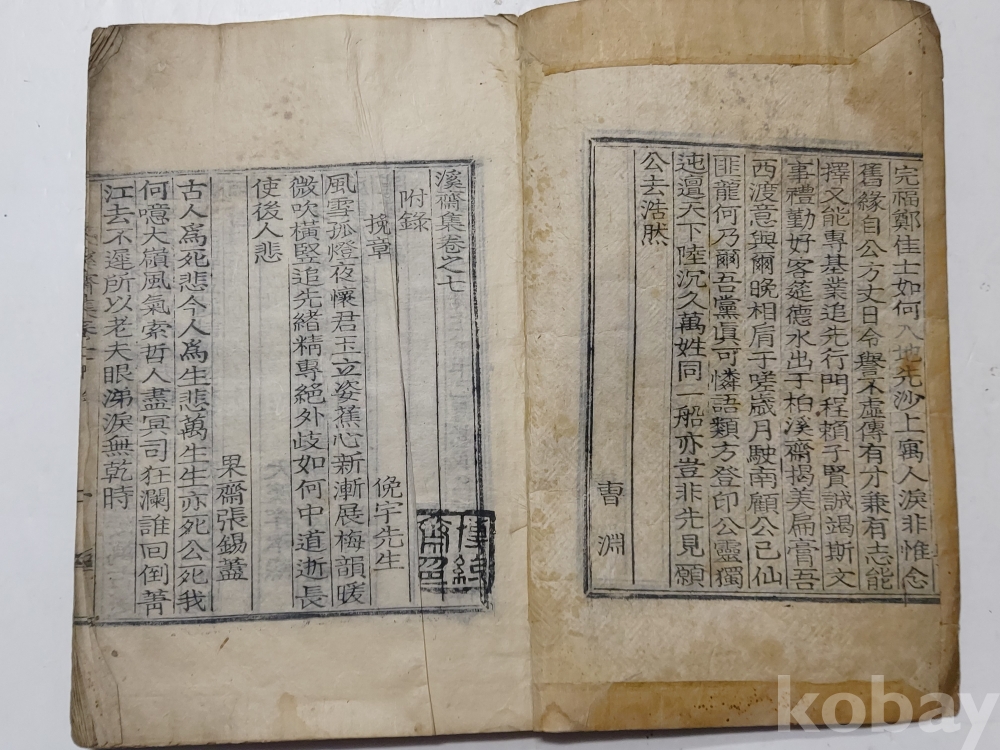 完福鄭佳士如何入地先沙上寓人淚非惟念
舊緣自公方丈日令譽不虛傳有才兼有志能
擇又能專基業追先行門程賴子賢誠竭斯文
事禮勤好客筵德水出于柏溪齋揭美扁膏吾
西渡意與爾晩相肩于嗟歲月駛南顧公已仙
匪龍何乃爾吾黨眞可憐語類方登印公靈獨
迍邅天下陸沉久萬姓同一船亦豈非先見願
公去浩然
曺淵
溪齋集卷之七
附錄
挽章
俛宇先生
風雪孤燈夜懷君玉立姿蕉心新漸展梅韻暖
微吹橫竪追先緖精專絕外歧如何中道逝長
使後人悲
果齋張錫藎
古人爲死悲今人爲生悲萬生生亦死公死我
何噫大嶺風氣索哲人盡冥司狂瀾誰回倒菁
江去不遲所以老夫眼涕淚無乾時
kobay